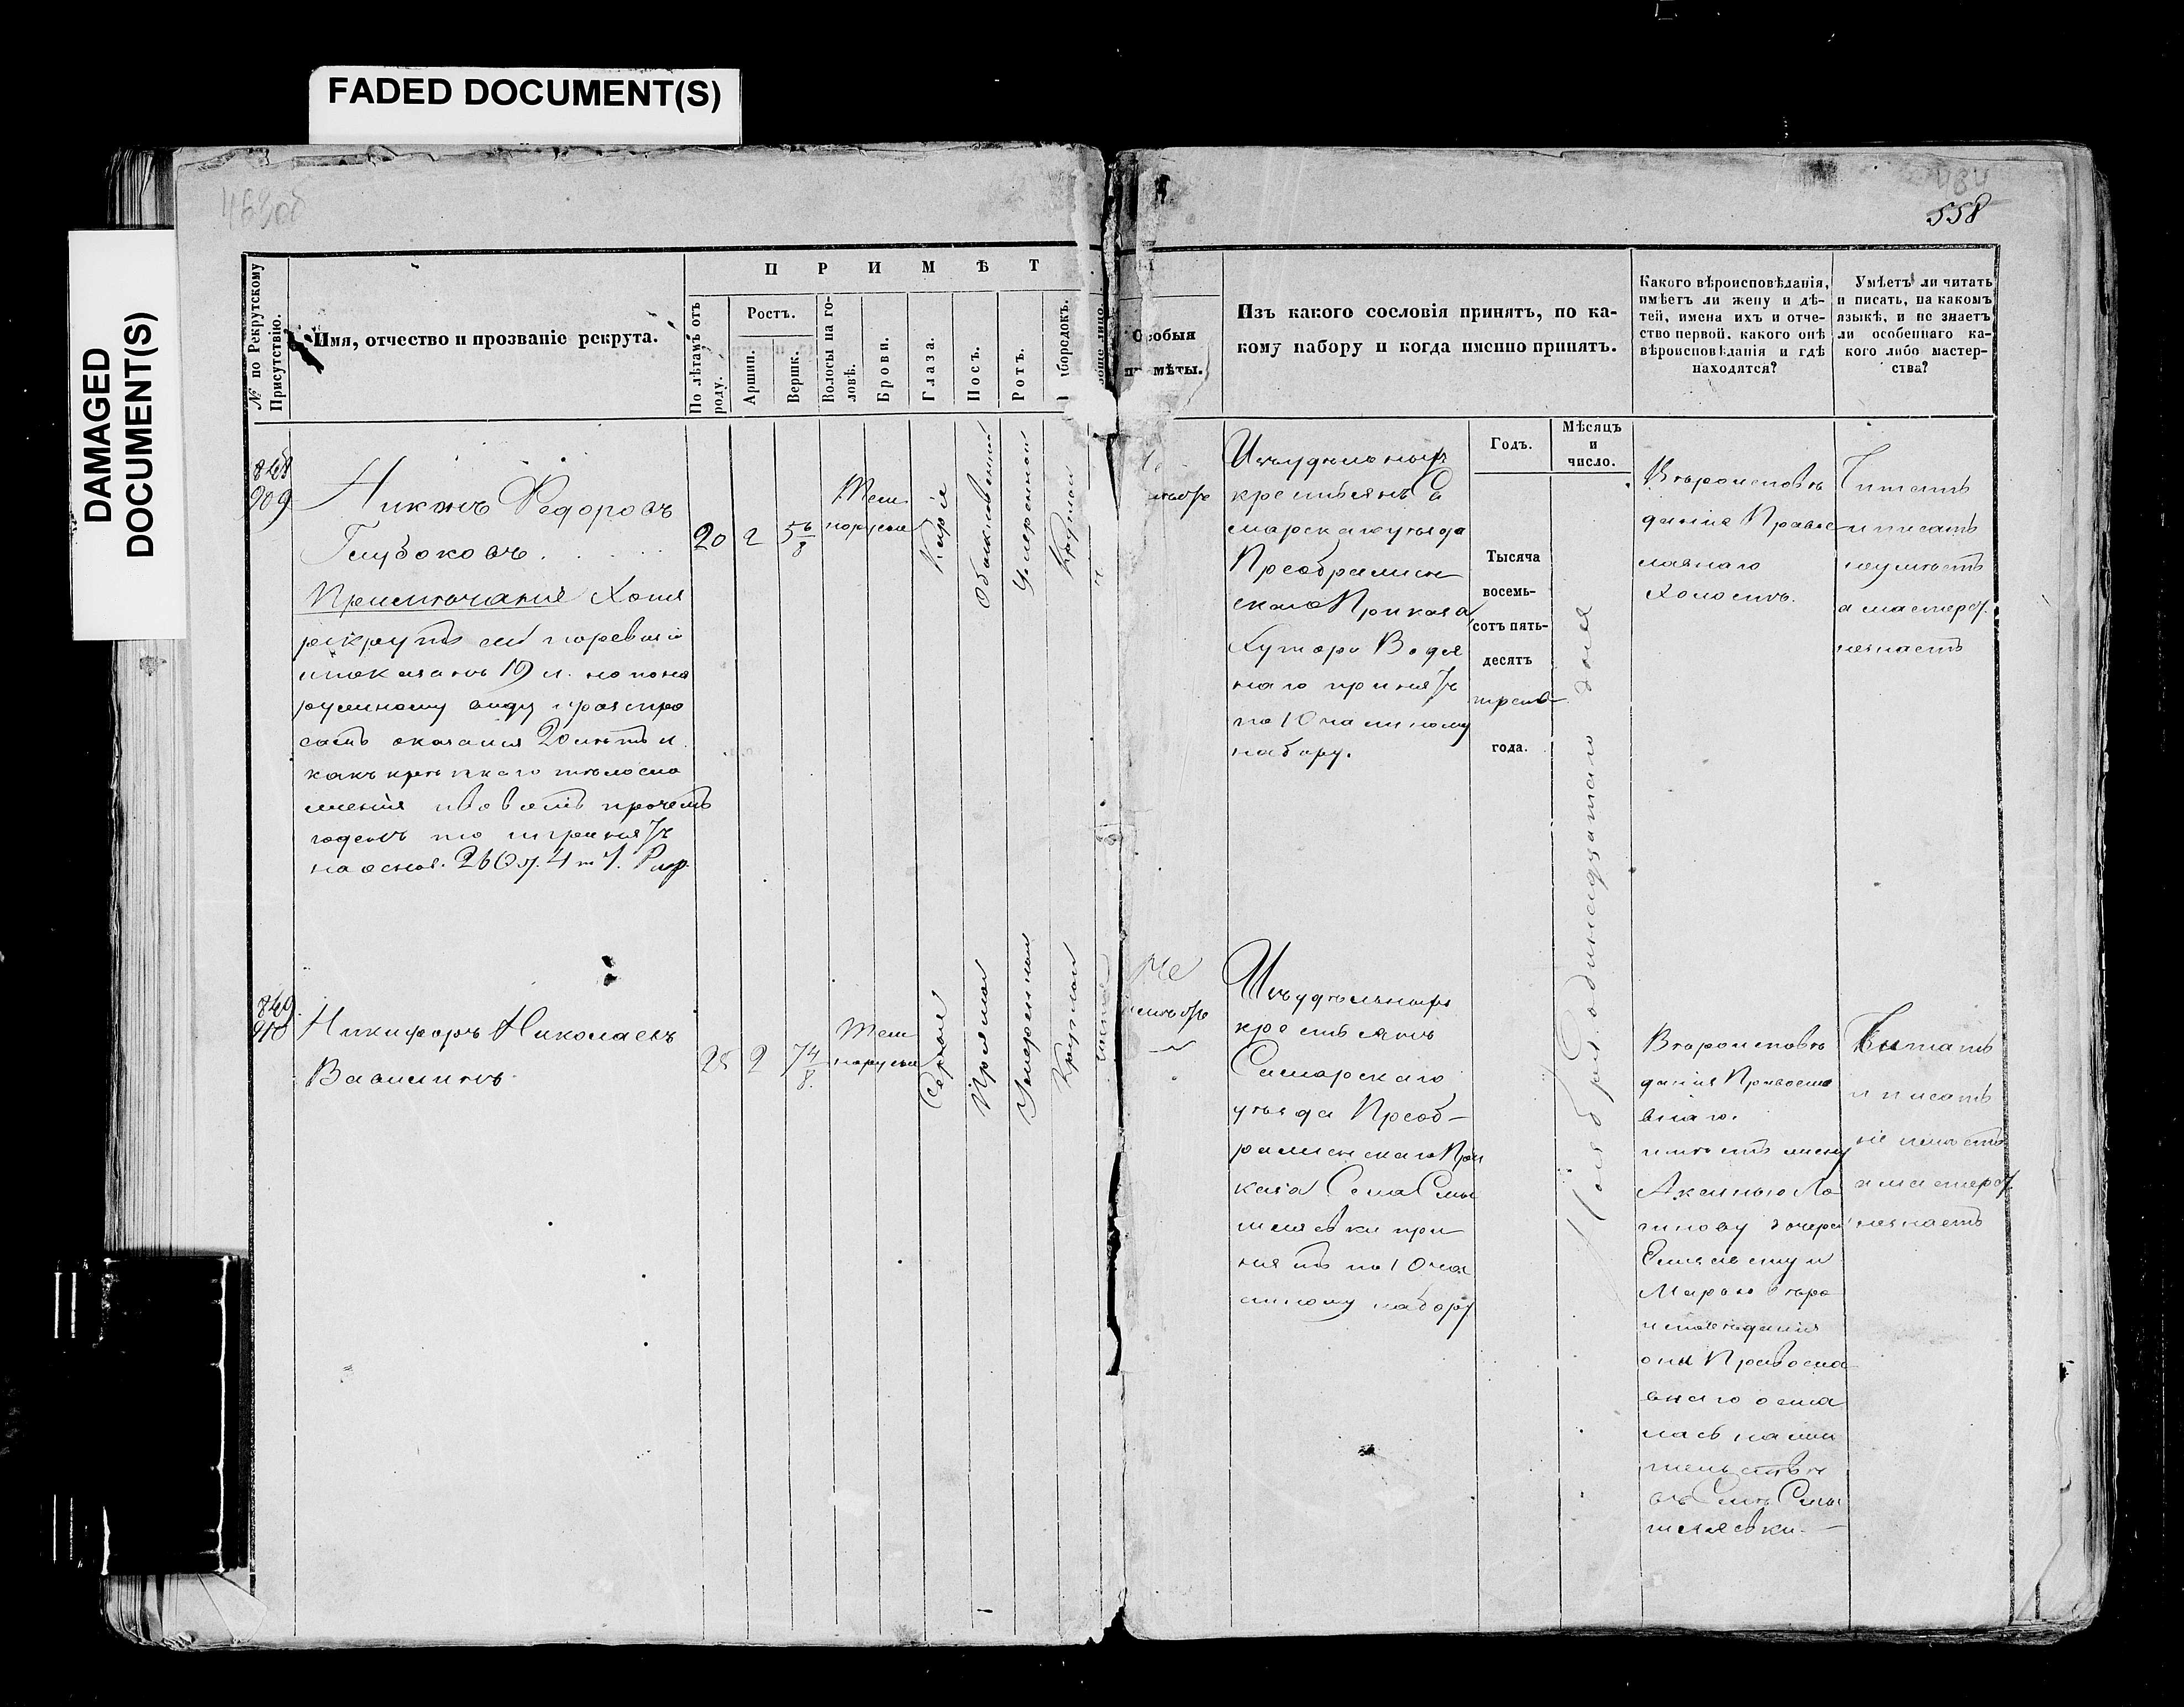 FADED DOCUMENT(S)
DAMAGED
DOCUMENT(S)
558
№ по Рекрутскому
Присутствію.
Имя, отчество и прозваніе рекрута.
П Р И М Ѣ Т
По лѣтамъ отъ
роду.
Ростъ.
Аршин.
Вершк.
Волосы на го-
ловѣ.
Брови.
Глаза.
Носъ.
Ротъ.
Особыя
мѣты.
Изъ какого сословія принятъ, по ка-
кому набору и когда именно принятъ.
Годъ.
Мѣсяцъ
и
число.
Какого вѣроисповѣданія,
имѣетъ ли жену и дѣ-
тей, имена ихъ и отче-
ство первой, какого онѣ
вѣроисповѣданія и гдѣ
находятся?
Умѣетъ ли читать
и писать, на какомъ
языкѣ, и не знаетъ
ли особеннаго ка-
кого либо мастер-
ства?
848
909
Никонъ Федоровъ
Глубоковъ
Примечание Хотя
рекрутъ сей по ревизіи
и показанъ 19 л. но по на
ружному виду и распро
самъ оказался 20 летъ и
какъ крепкаго телосло
жения и во всемъ прочемъ
годенъ то и принятъ
на основ. 260 4 т 1. Рекр.
20
2
5 6/8
Тем
норусые
Каріе
Обыкновенный
Умеренной
Круглой
Изъ удельныхъ
крестьянъ Са
марскаго уезда
Преображен
скаго Приказа
Хутора Водя
наго принятъ
по 10 частному
набору.
Тысяча
восемь-
сотъ пять-
десятъ
третьяго
года.
Ноября одинадцатаго дня
Вероисповѣ
данія Право
славнаго
Холостъ.
Читать
и писать
неумѣетъ
а мастерст.
незнаетъ
849
910
Никифоръ Николаевъ
Вавилинъ
25
2
7 4/8
Тем
норусые
Серые
Прямой
Умеренной
Круглой
Не
имѣетъ
Изъ удѣльныхъ
крестьянъ
Самарскаго
уезда Преоб-
раженскаго При
каза Села Смы
шляевки при
нятъ по 10 ча
стному набору
Вероисповѣ
данія Правосла
внаго.
имѣетъ жену
Аксинью Ло
гинову дочерей
и
Марью веро
исповеданія
они Правосла
внаго оста
лась на жи
тельствѣ
въ Селѣ Смы
шляевки.
Читать
и писать
не умѣетъ
а мастерст.
незнаетъ